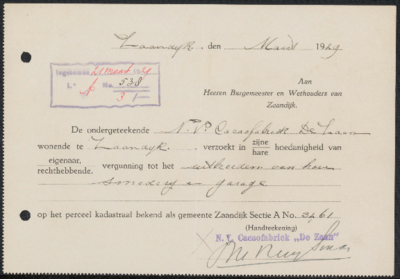 Zaandijk, den Maart 1929
Ingekomen 21 Maart 1929
L. No. 538
Aan
Heeren Burgemeester en Wethouders van
Zaandijk.
De ondergeteekende N.V. Cacaofabriek De Zaan
wonende te Zaandijk, verzoekt in zijne hare hoedanigheid van
eigenaar, rechthebbende, vergunning tot het uitbreiden van hare
smederij en garage
op het perceel kadastraal bekend als gemeente Zaandijk Sectie A No. 2461
(Handteekening)
N.V. Cacaofabriek „De Zaan”